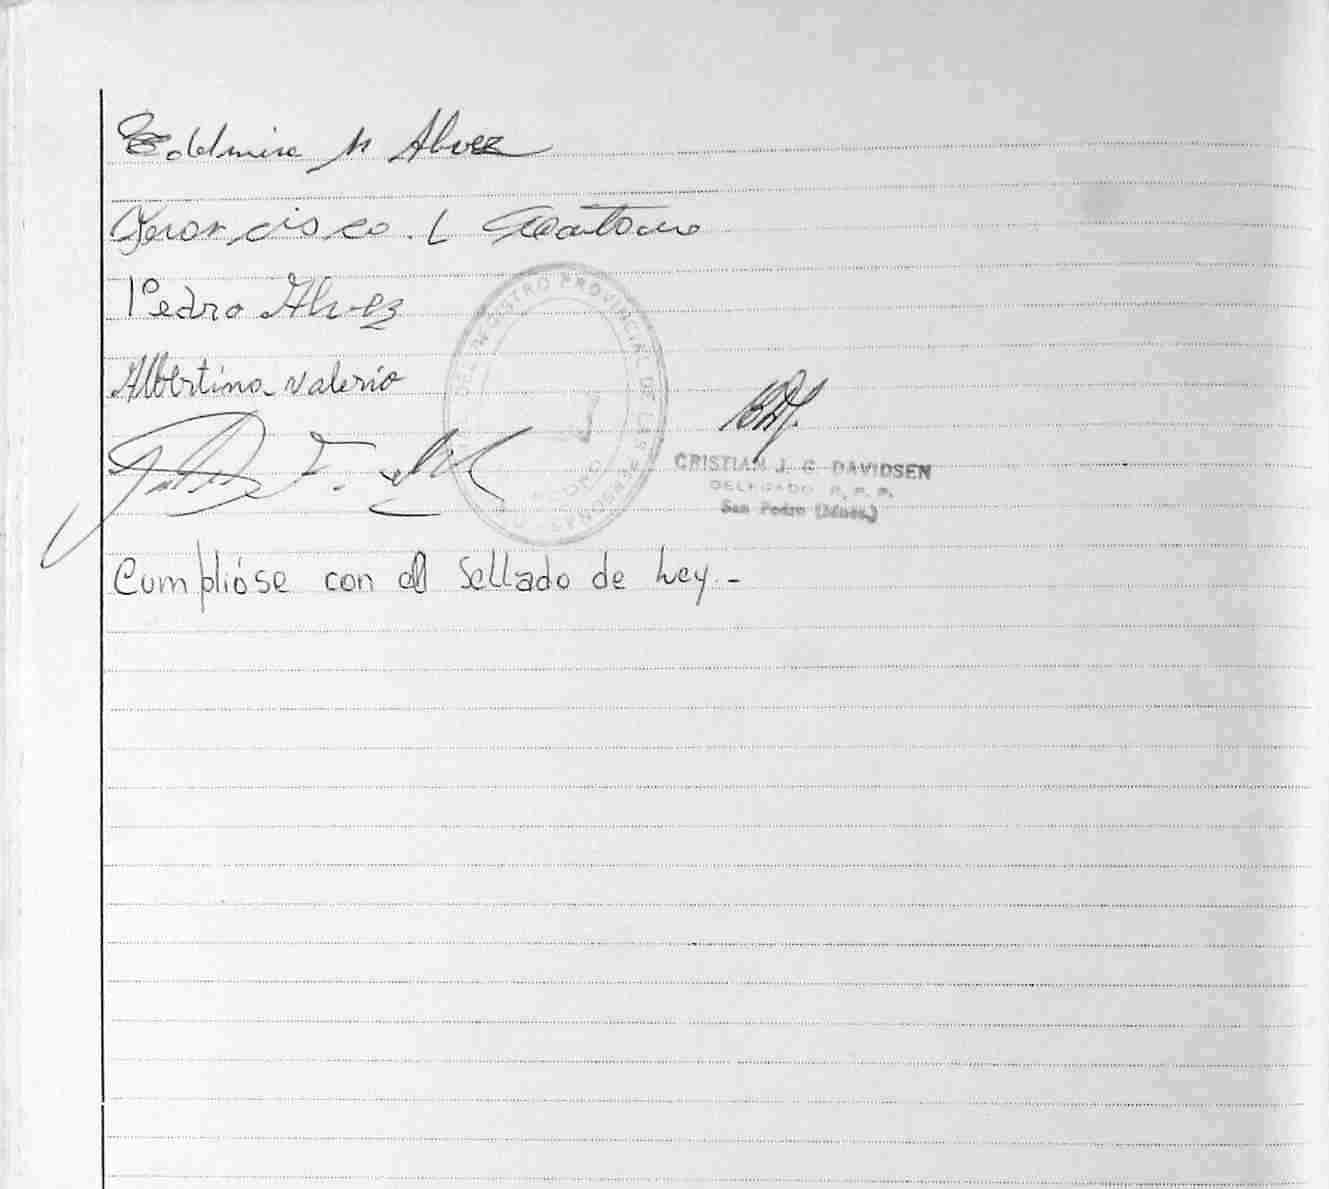 Edelmira M Alvez
Francisco. L
Pedro Alvez
Albertina Valerio
DEL REGISTRO PROVINCIAL DE LAS PERSONAS
CRISTIAN J. C. DAVIDSEN
DELEGADO R. P. P.
San Pedro (Mnes.)
Cumplióse con el Sellado de Ley.-